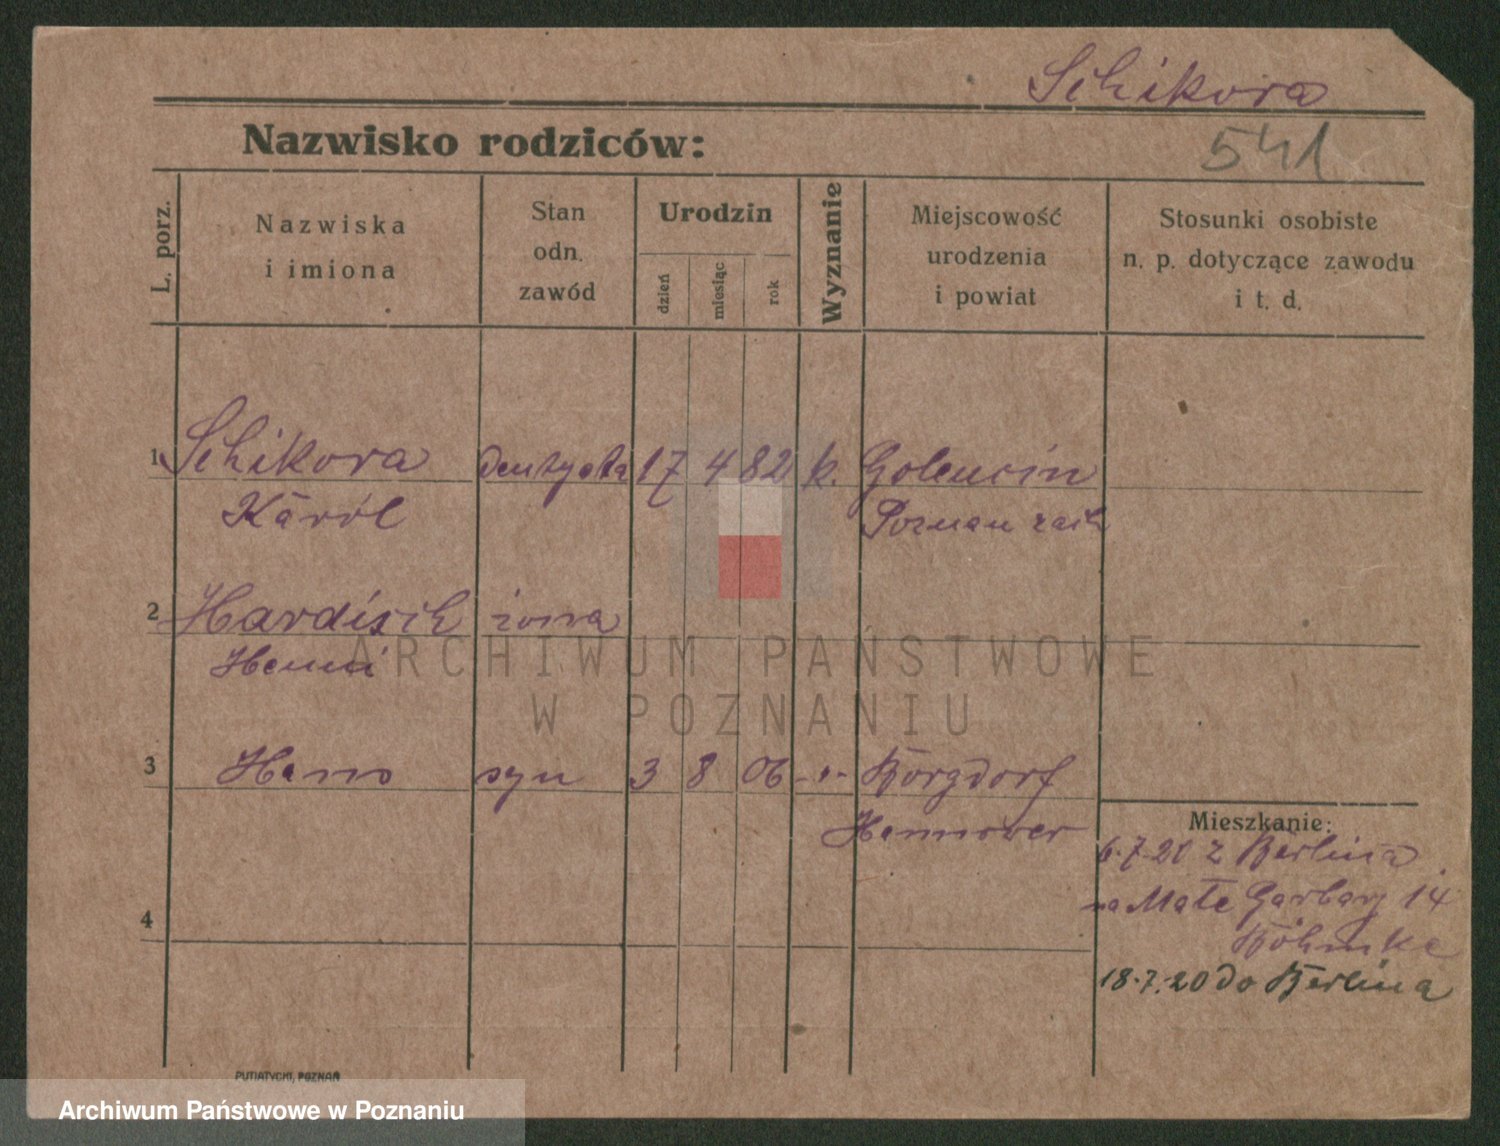 Schikora
541
Nazwisko rodziców:
L. porz.
Nazwiska
i imiona
Stan
odn.
zawód
Urodzin
dzień
miesiąc
rok
Wyznanie
Miejscowość
urodzenia
i powiat
Stosunki osobiste
n. p. dotyczące zawodu
i t. d.
1 Schikora dentysta 17 4 82 k. Golencin
Karól Poznan zach
2 Hardisch żona
Henni
ARCHIWUM PAŃSTWOWE
W POZNANIU
3 Hans syn 3 8 06 -"- Borgdorf
Hannower
Mieszkanie:
6.7.20 z Berlina
na Małe Garbary 14
Böhmke
4
18.7.20 do Berlina
PUTIATYCKI, POZNAŃ
Archiwum Państwowe w Poznaniu